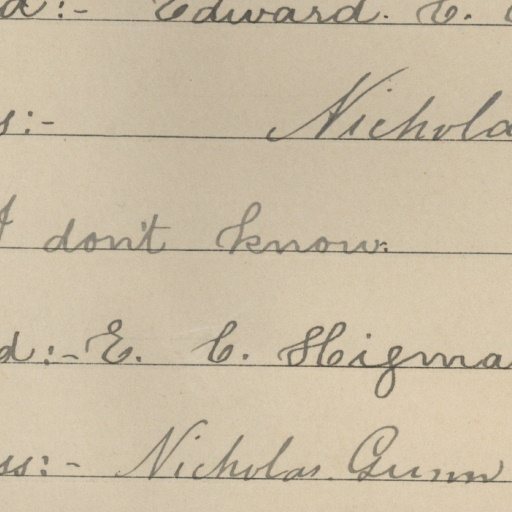 d:- Edward. C.
s:- Nichola
I don't know.
d:- E. C. Higma
ss:- Nicholas. Gunn